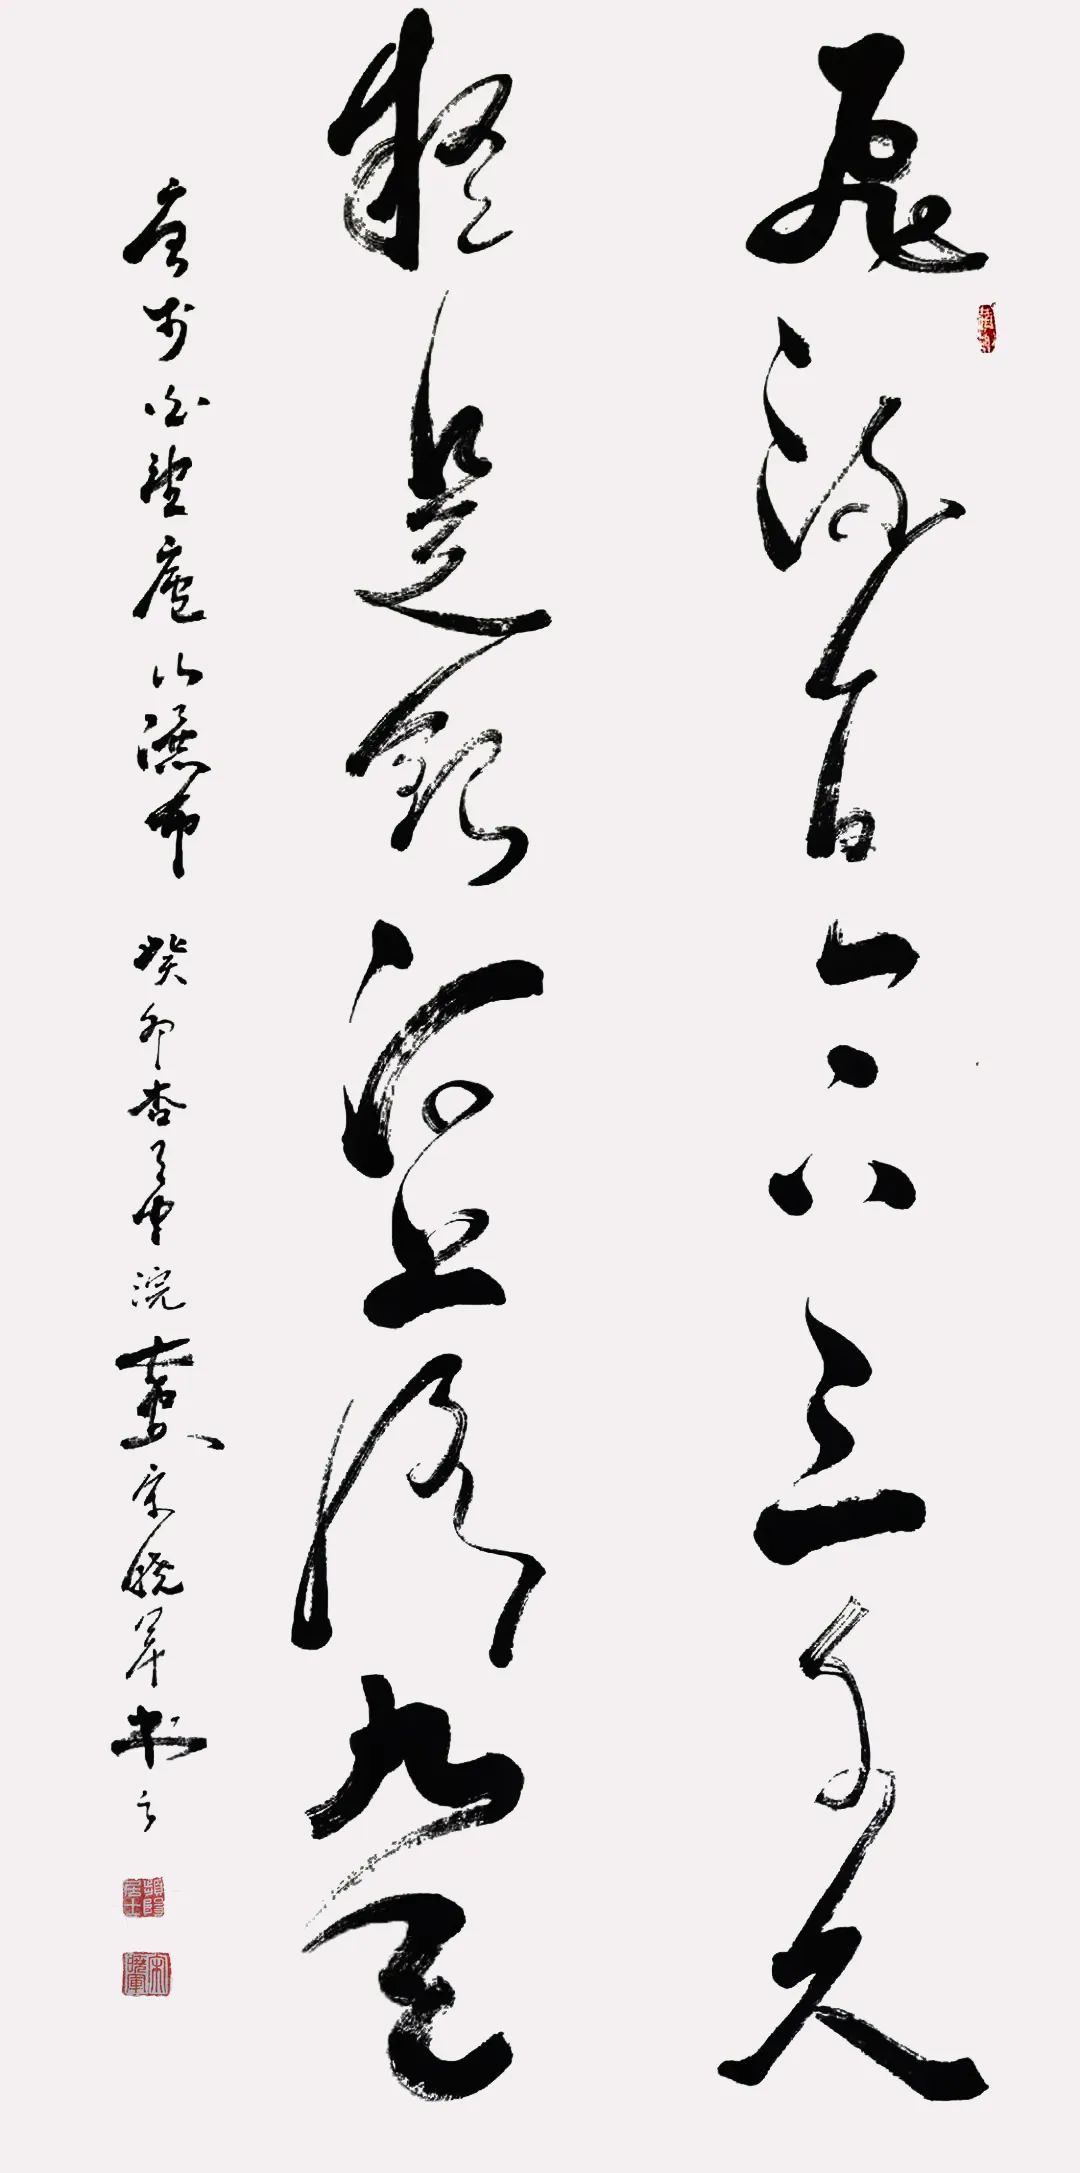 飛流直下三千尺
疑是銀河落九天
唐李白望廬山瀑布 癸卯杏月中浣 宋曉軍书之
宋曉軍